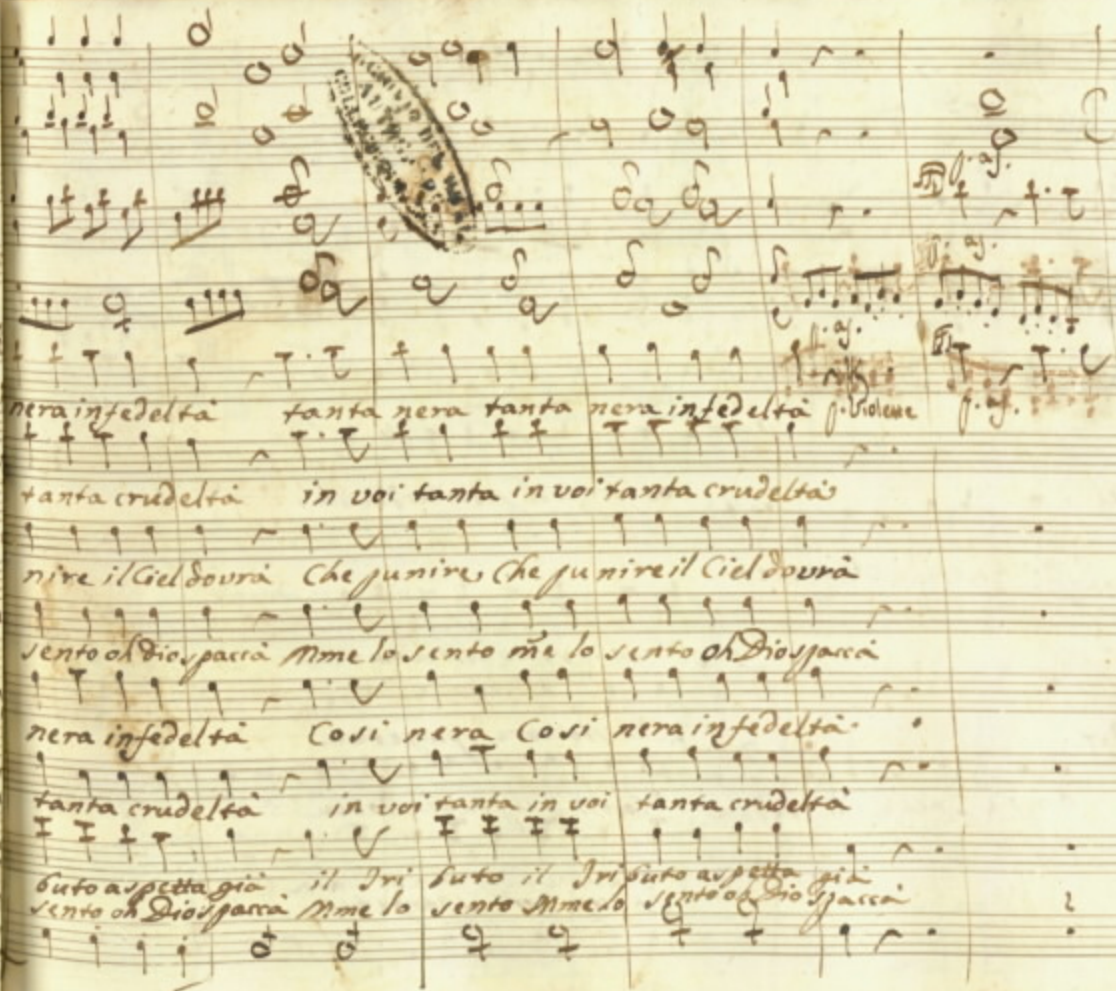 f. as.
f. as.
f. as.
nera infedeltà tanta nera tanta nera infedeltà f. Violette f. as.
tanta crudeltà in voi tanta in voi tanta crudeltà
nire il Ciel dovrà Che punire Che punire il Ciel dovrà
sento oh Dio spaccà Mme lo sento me lo sento oh Dio spaccà
nera infedeltà Cosi nera Cosi nera infedeltà
tanta crudeltà in voi tanta in voi tanta crudeltà
buto aspetta già il Tri buto il Tributo aspetta già
sento oh Dio spaccà Mme lo sento Mme lo sento oh Dio spaccà